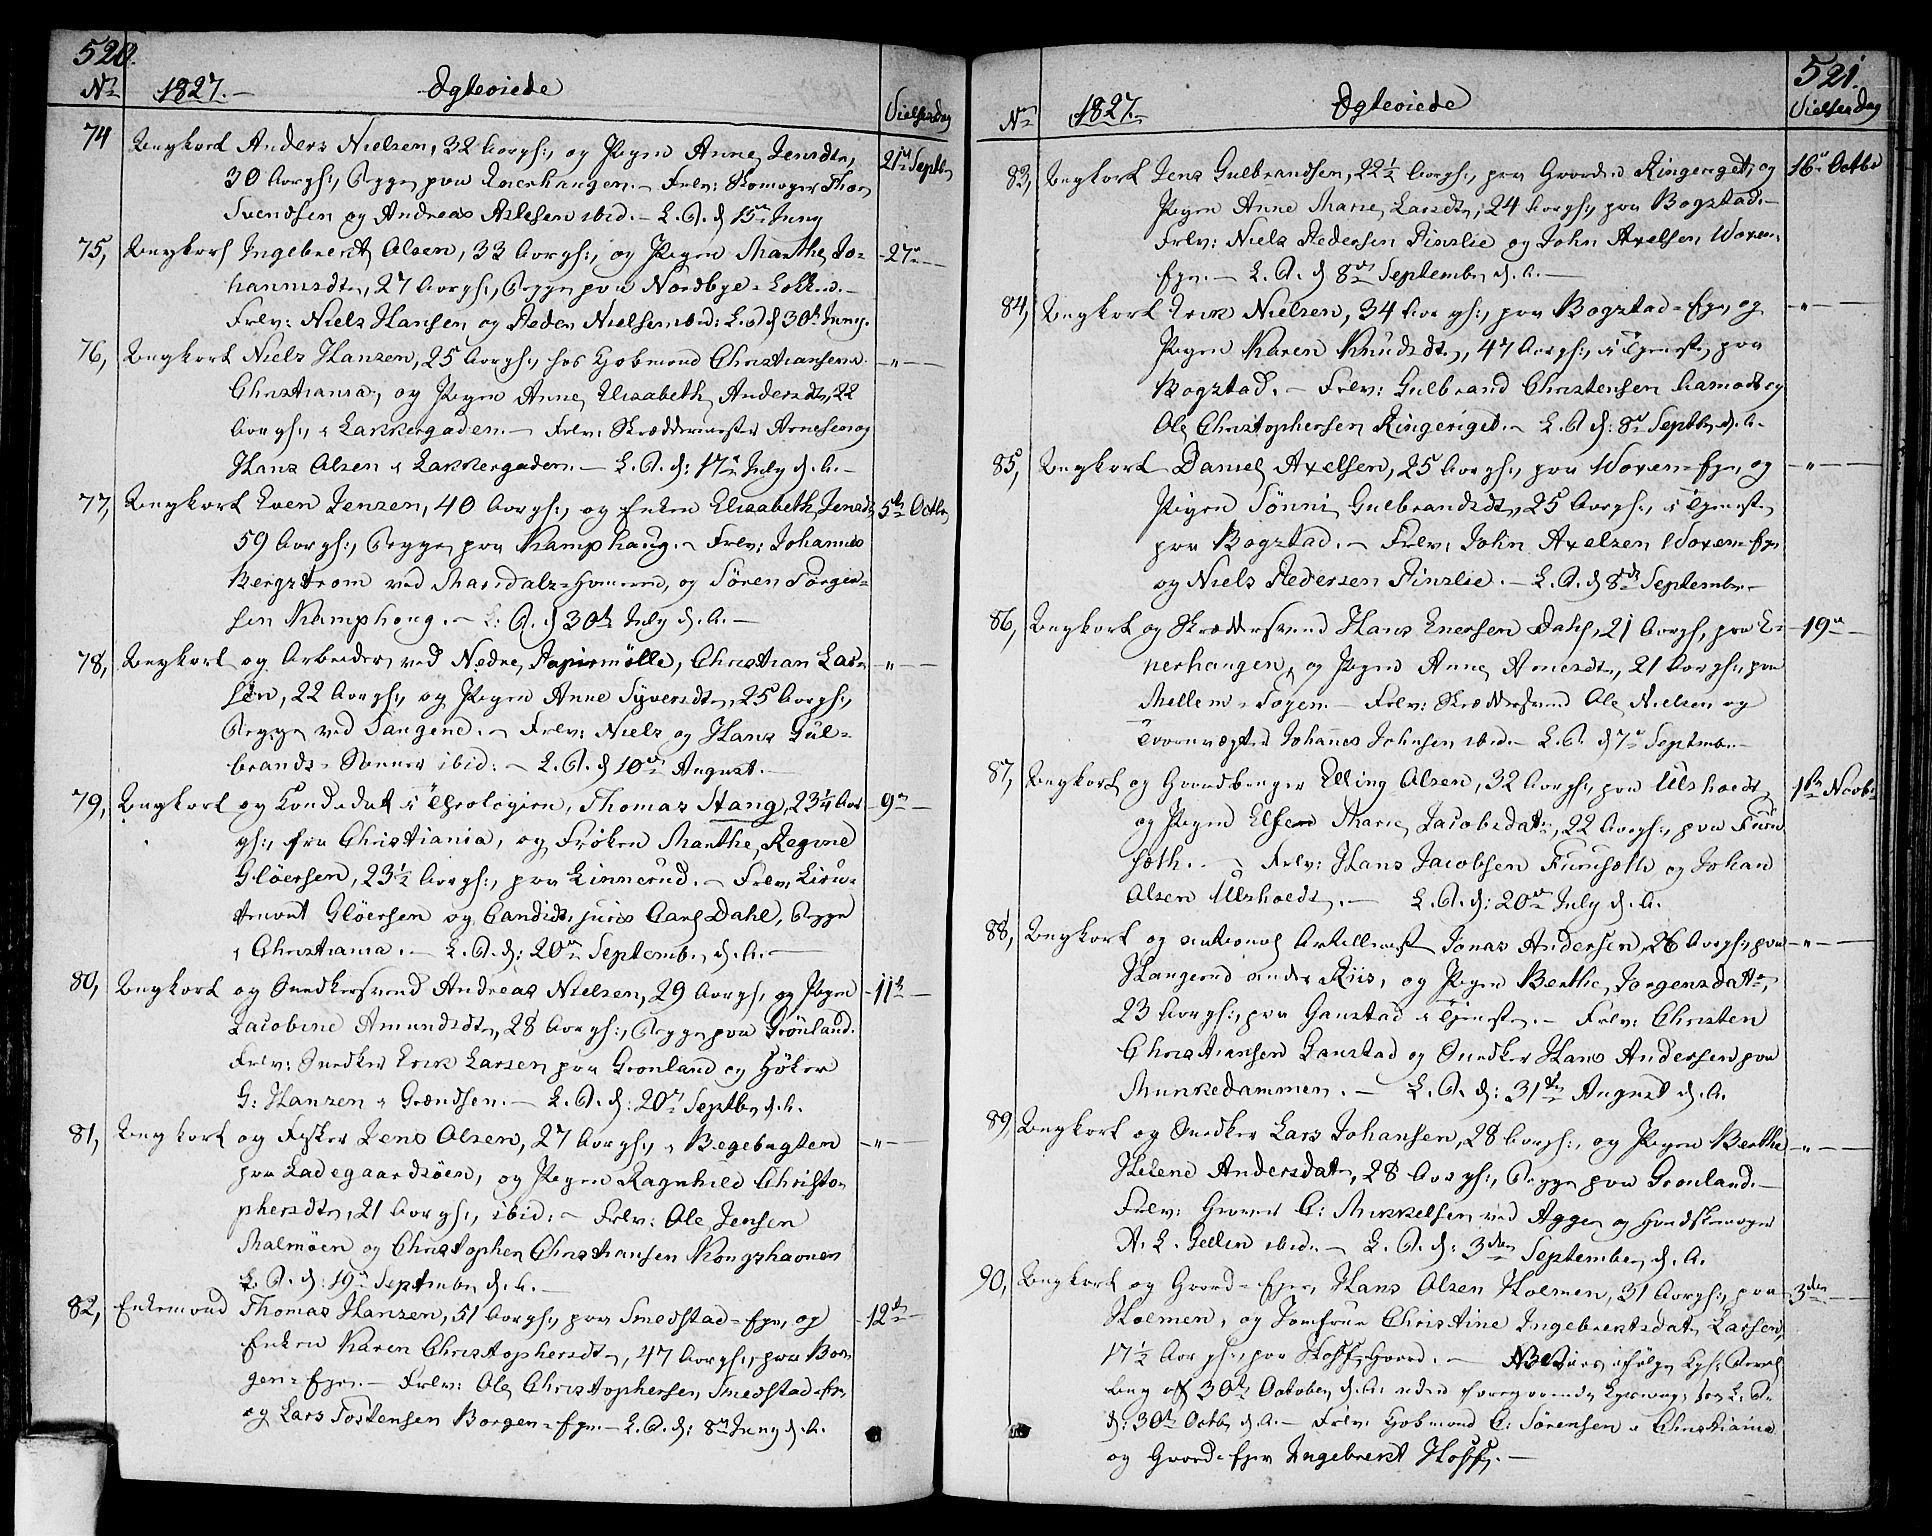 520.
No 1827. Ægteviede Vielsesdag
74 Ungkarl Anders Nielsen, 32 Aar gl:, og Pigen Anne Jensdtr, 21de Septbr
30 Aar gl:, Begge paa Enerhaugen. Forlv: Skomager Thor
Svendsen og Andreas Aslesen ibid. L. A. d 15de Juny
75, Ungkarl Ingebreth Olsen, 33 Aar gl:, og Pigen Marthe Jo= 27de
hannesdtr, 27 Aar gl:, Begge paa Nordbye=Løkken.
Forlv: Niels Hansen og Peder Nielsen ibid: L. A. d 30te Juny.
76, Ungkarl Niels Hansen, 25 Aar gl:, hos Kjøbmand Christiansen i —„—
Christiania, og Pigen Anne Elisabeth Andersdtr, 22
Aar gl:, i Lakkergaden. Forlv: Skræddermester Arnesen og
Hans Olsen i Lakkergaden. — L. A. d: 17de July d. A. —
77, Ungkarl Even Jensen, 40 Aar gl:, og Enken Elisabeth Jensdtr 5te Octbr
59 Aar gl:, Begge paa Kamphaug. — Forlv: Johannes
Bergstrøm ved Maridals=Hammeren, og Søren Jørgen=
sen Kamphaug. — L. A. d 30te July d. A. —
78, Ungkarl og Arbeider ved Nedre Papirmølle, Christian Lar= —„—
sen, 22 Aar gl:, og Pigen Anne Syversdtr, 25 Aar gl:,
Begge ved Saugene. — Forlv: Niels og Hans Gul=
brands=Sønner ibid: — L. A. d 10de August. —
79, Ungkarl og Candidat i Theologien, Thomas Stang, 23¼ Aar 9de
gl:, fra Christiania, og Frøken Marthe Regine
Gløersen, 23½ Aar gl:, paa Linnerud. — Forlv: Lieu=
tenant Gløersen og Candidt. juris Carl Dahl, Begge
i Christiania. — L. A. d: 20de Septembr d. A. —
80, Ungkarl og Snedkersvend Andreas Nielsen, 29 Aar gl: og Pigen 11te
Jacobine Amundsdtr, 28 Aar gl:, Begge paa Grønland.
Forlv: Snedker Erik Larsen paa Grønland og Høker
G: Hansen i Grændsen. — L. A. d: 20de Septbr d. A.
81, Ungkarl og Fisker Jens Olsen, 27 Aar gl:, i Begebugten —„—
paa Ladegaardsøen, og Pigen Ragnhild Christo=
phersdtr, 21 Aar gl:, ibid: — Forlv: Ole Jensen
Malmøen og Christopher Christiansen Kongshavnen
L. A. d: 19de Septembr d. A. —
82, Enkemand Thomas Hansen, 51 Aar gl:, paa Smedstad=Ejer, og 12te
Enken Karen Christophersdtr, 47 Aar gl:, paa Bor=
gen=Ejer. — Forlv: Ole Christophersen Smedstad=Ejer
og Lars Tostensen Borgen=Ejer. — L. A. d: 8de Juny d. A.
521.
No 1827. Ægteviede Vielsesdag
83, Ungkarl Jens Gulbrandsen, 22½ Aar gl:, paa Ringeriget, og 16de Octbr
Pigen Anne Marie Larsdtr, 24 Aar gl:, paa Bogstad. —
Forlv: Niels Pedersen Pinslie og John Axelsen Woxen=
Ejer. — L. A. d 8de Septembr d. A. —
84, Ungkarl Erik Nielsen, 34 Aar gl:, paa Bogstad=Ejer, og —„—
Pigen Karen Knudsdtr, 47 Aar gl:, i Tjeneste paa
Bogstad. — Forlv: Gulbrand Christensen Aamodt og
Ole Christophersen Ringeriget. — L. A. d: 8de Septbr d. A.
85, Ungkarl Daniel Axelsen, 25 Aar gl:, paa Woxen=Ejer, og —„—
Pigen Sønni Gulbrandsdtr, 25 Aar gl:, i Tjeneste
paa Bogstad. — Forlv: John Axelsen Woxen=Ejer
og Niels Pedersen Pinslie. — L. A. d 8de Septembr. —
86, Ungkarl og Skræddersvend Hans Enersen Dahl, 21 Aar gl, paa E= 19de
nerhaugen, og Pigen Anne Arnesdtr, 21 Aar gl:, paa
Mellem=Sogen. — Forlv: Skræddersvend Ole Nielsen og
Taarnvægter Johannes Johnsen ibid. — L. A. d 7de Septembr. —
87, Ungkarl og Gaardbruger Elling Olsen, 32 Aar gl:, paa Ulshoedt 1ste Novbr
og Pigen Elsen Marie Jacobsdatr, 22 Aar gl:, paa Furu
seth. — Forlv: Hans Jacobsen Furuseth og Johan
Olsen Ulshoedt. — L. A. d: 20de July d. A.
88, Ungkarl og national Artillerist Jonas Andersen, 26 Aar gl:, paa —„—
Haugerud under Riis, og Pigen Berthe Jørgensdatr,
23 Aar gl:, paa Ganstad i Tjeneste. — Forlv: Christen
Christiansen Ganstad og Snedker Hans Andersen paa
Munkedammen. — L. A. d: 31te August d. A.
89, Ungkarl og Snedker Lars Johansen, 28 Aar gl:, og Pigen Berthe —„—
Helene Andersdatr, 28 Aar gl:, Begge paa Grønland. —
Forlv: Garver C: Mikkelsen ved Aggers og Handskemager
A. L. Gellin ibid. — L. A. d: 3den Septembr d. A.
90, Ungkarl og Gaard=Ejer Hans Olsen Holmen, 31 Aar gl:, paa 3den
Holmen, og Jomfrue Christine Ingebrektsdatr Larsen,
17½ Aar gl:, paa Hoff Gaard. — NB Viet ifølge Kgl: Bevil
ling af 30te October d. A. uden foregaaende Lysning, see L. A.
d: 30te Octbr d. A. — Forlv: Kjøbmand C: Sørensen i Christiania
og Gaard=Ejer Ingebrekt Hoff. —